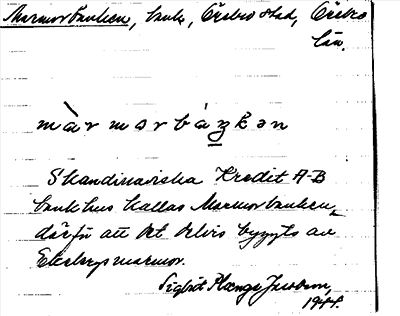 Marmorbanken, bank, Örebro stad, Örebro
län.
màrmorbáŋkən
Skandinaviska Kredit A-B
bankhus kallas Marmorbanken,
därför att det delvis byggts av
Ekebergsmarmor.
Sigbrit Plænge Jacobson,
1944.